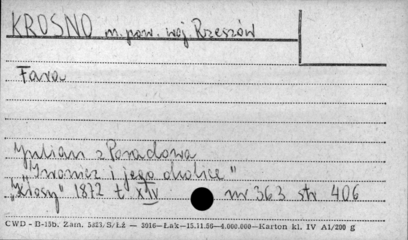 KROSNO m. pow. woj. Rzeszów
Fara
Julian z Poradowa
"Iwonicz i jego okolice"
"Kłosy" 1872 t XIV nr 363 str 406
CWD - D-15b, Zam. S/Łż — 3916—Łak—15.11.50—4.000.000—Karton kl. IV A1/200 g